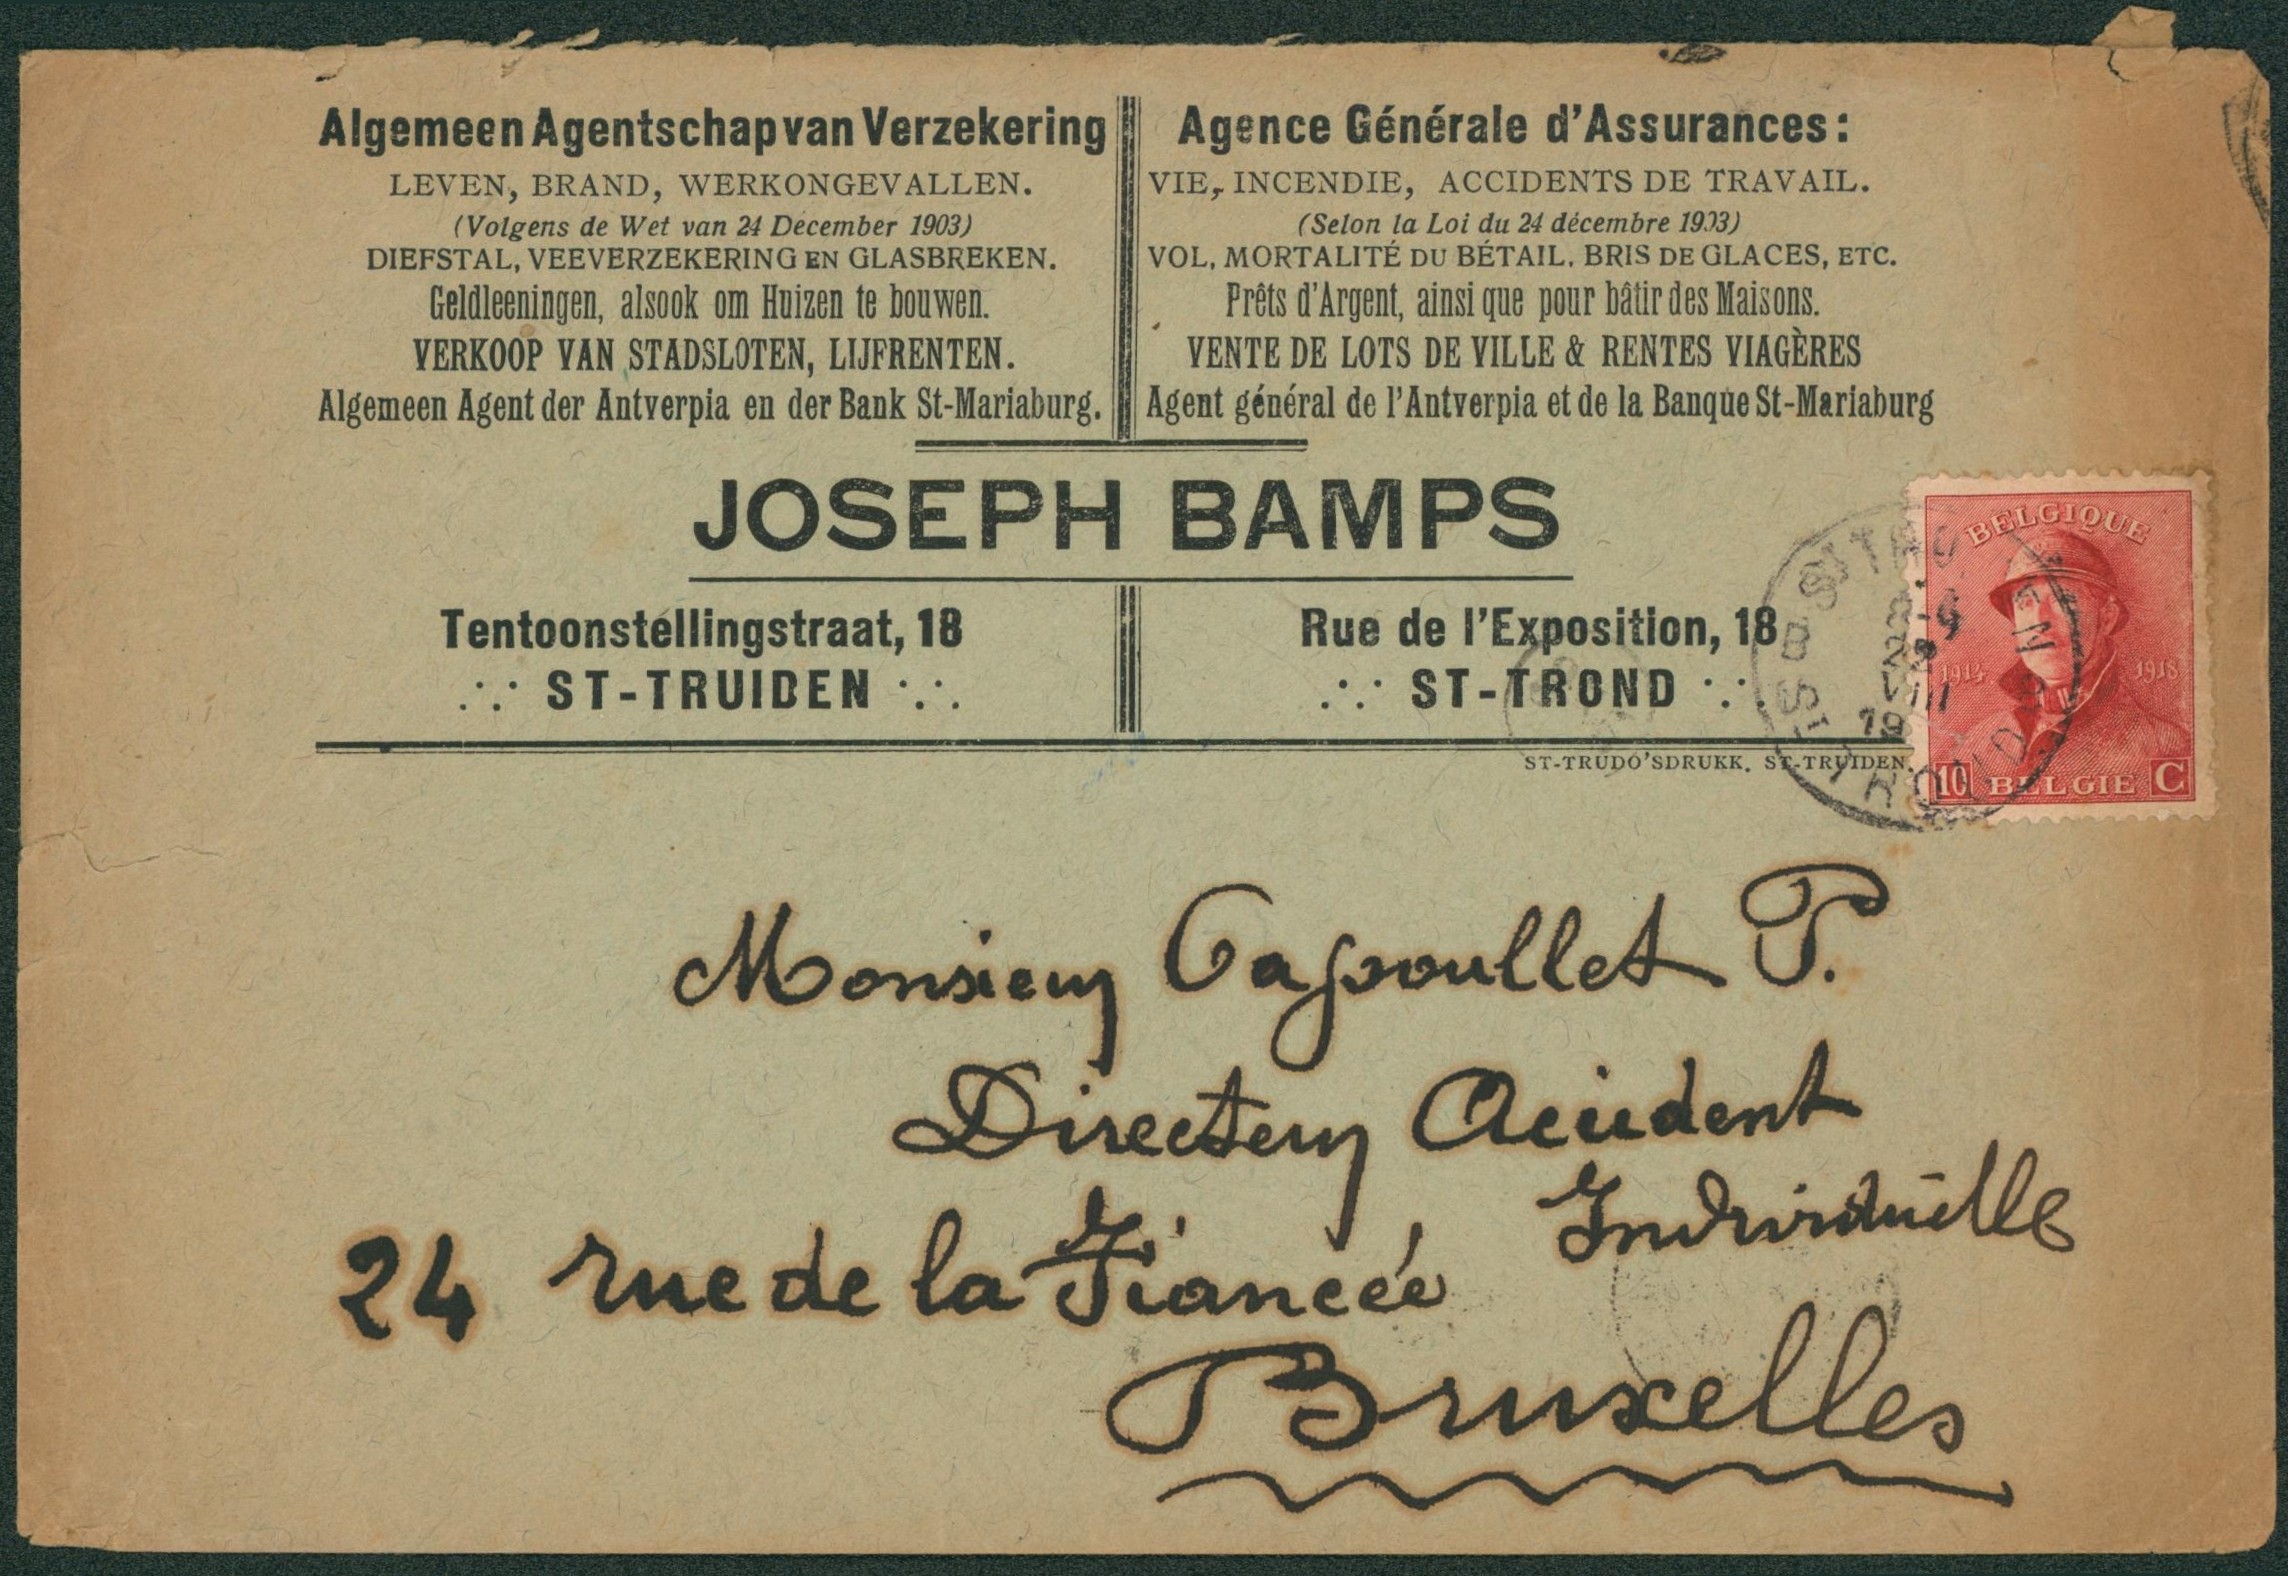 Algemeen Agentschap van Verzekering
LEVEN, BRAND, WERKONGEVALLEN.
(Volgens de Wet van 24 December 1903)
DIEFSTAL, VEEVERZEKERING EN GLASBREKEN.
Geldleeningen, alsook om Huizen te bouwen.
VERKOOP VAN STADSLOTEN, LIJFRENTEN.
Algemeen Agent der Antverpia en der Bank St-Mariaburg.
Agence Générale d'Assurances:
VIE, INCENDIE, ACCIDENTS DE TRAVAIL.
(Selon la Loi du 24 décembre 1903)
VOL, MORTALITÉ DU BÉTAIL, BRIS DE GLACES, ETC.
Prêts d'Argent, ainsi que pour bâtir des Maisons.
VENTE DE LOTS DE VILLE & RENTES VIAGÈRES
Agent général de l'Antverpia et de la Banque St-Mariaburg
JOSEPH BAMPS
Tentoonstellingstraat, 18
∴ ST-TRUIDEN ∴
Rue de l'Exposition, 18
∴ ST-TROND ∴
ST-TRUDO'SDRUKK. ST-TRUIDEN.
BELGIQUE
1914 1918
10 BELGIE C
Monsieur Capouillet P.
Directeur Accident
Individuelle
24 rue de la Fiancée
Bruxelles